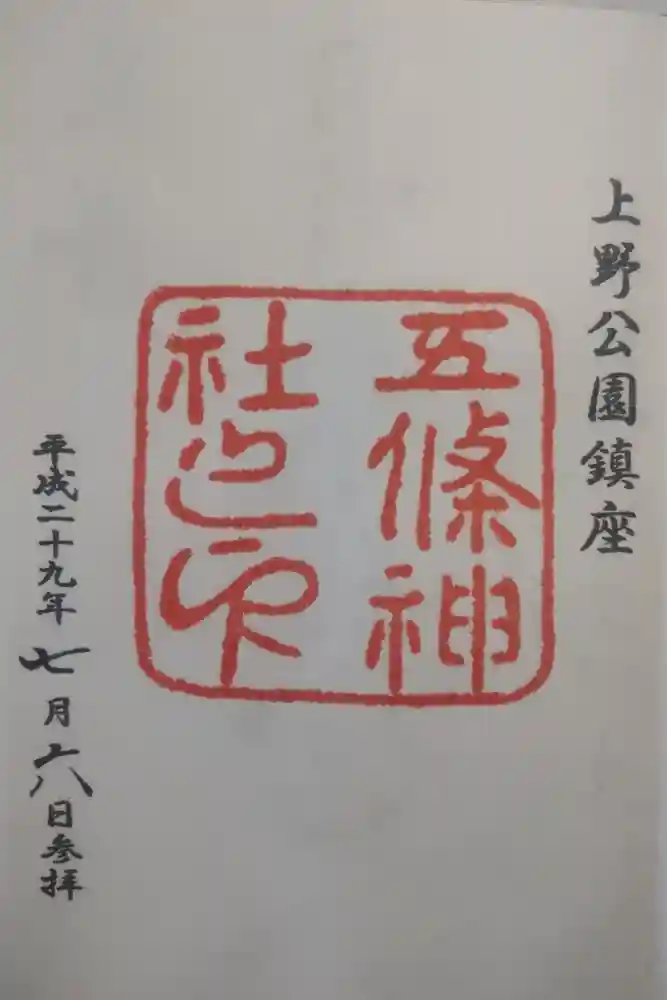 上野公園鎮座
五條神
社之印
平成二十九年七月六日参拝